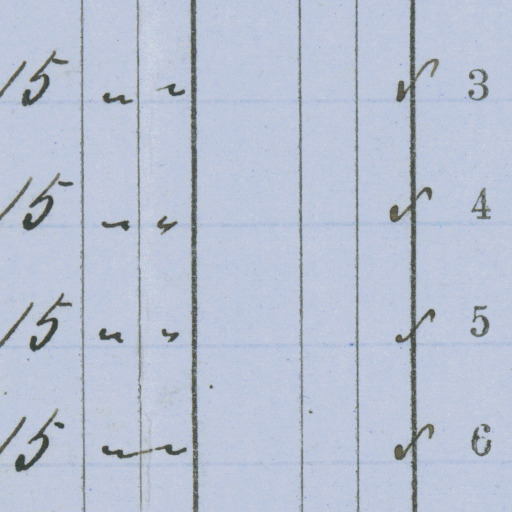 15 " " ✓ 3
15 " " ✓ 4
15 " " ✓ 5
15 " " ✓ 6